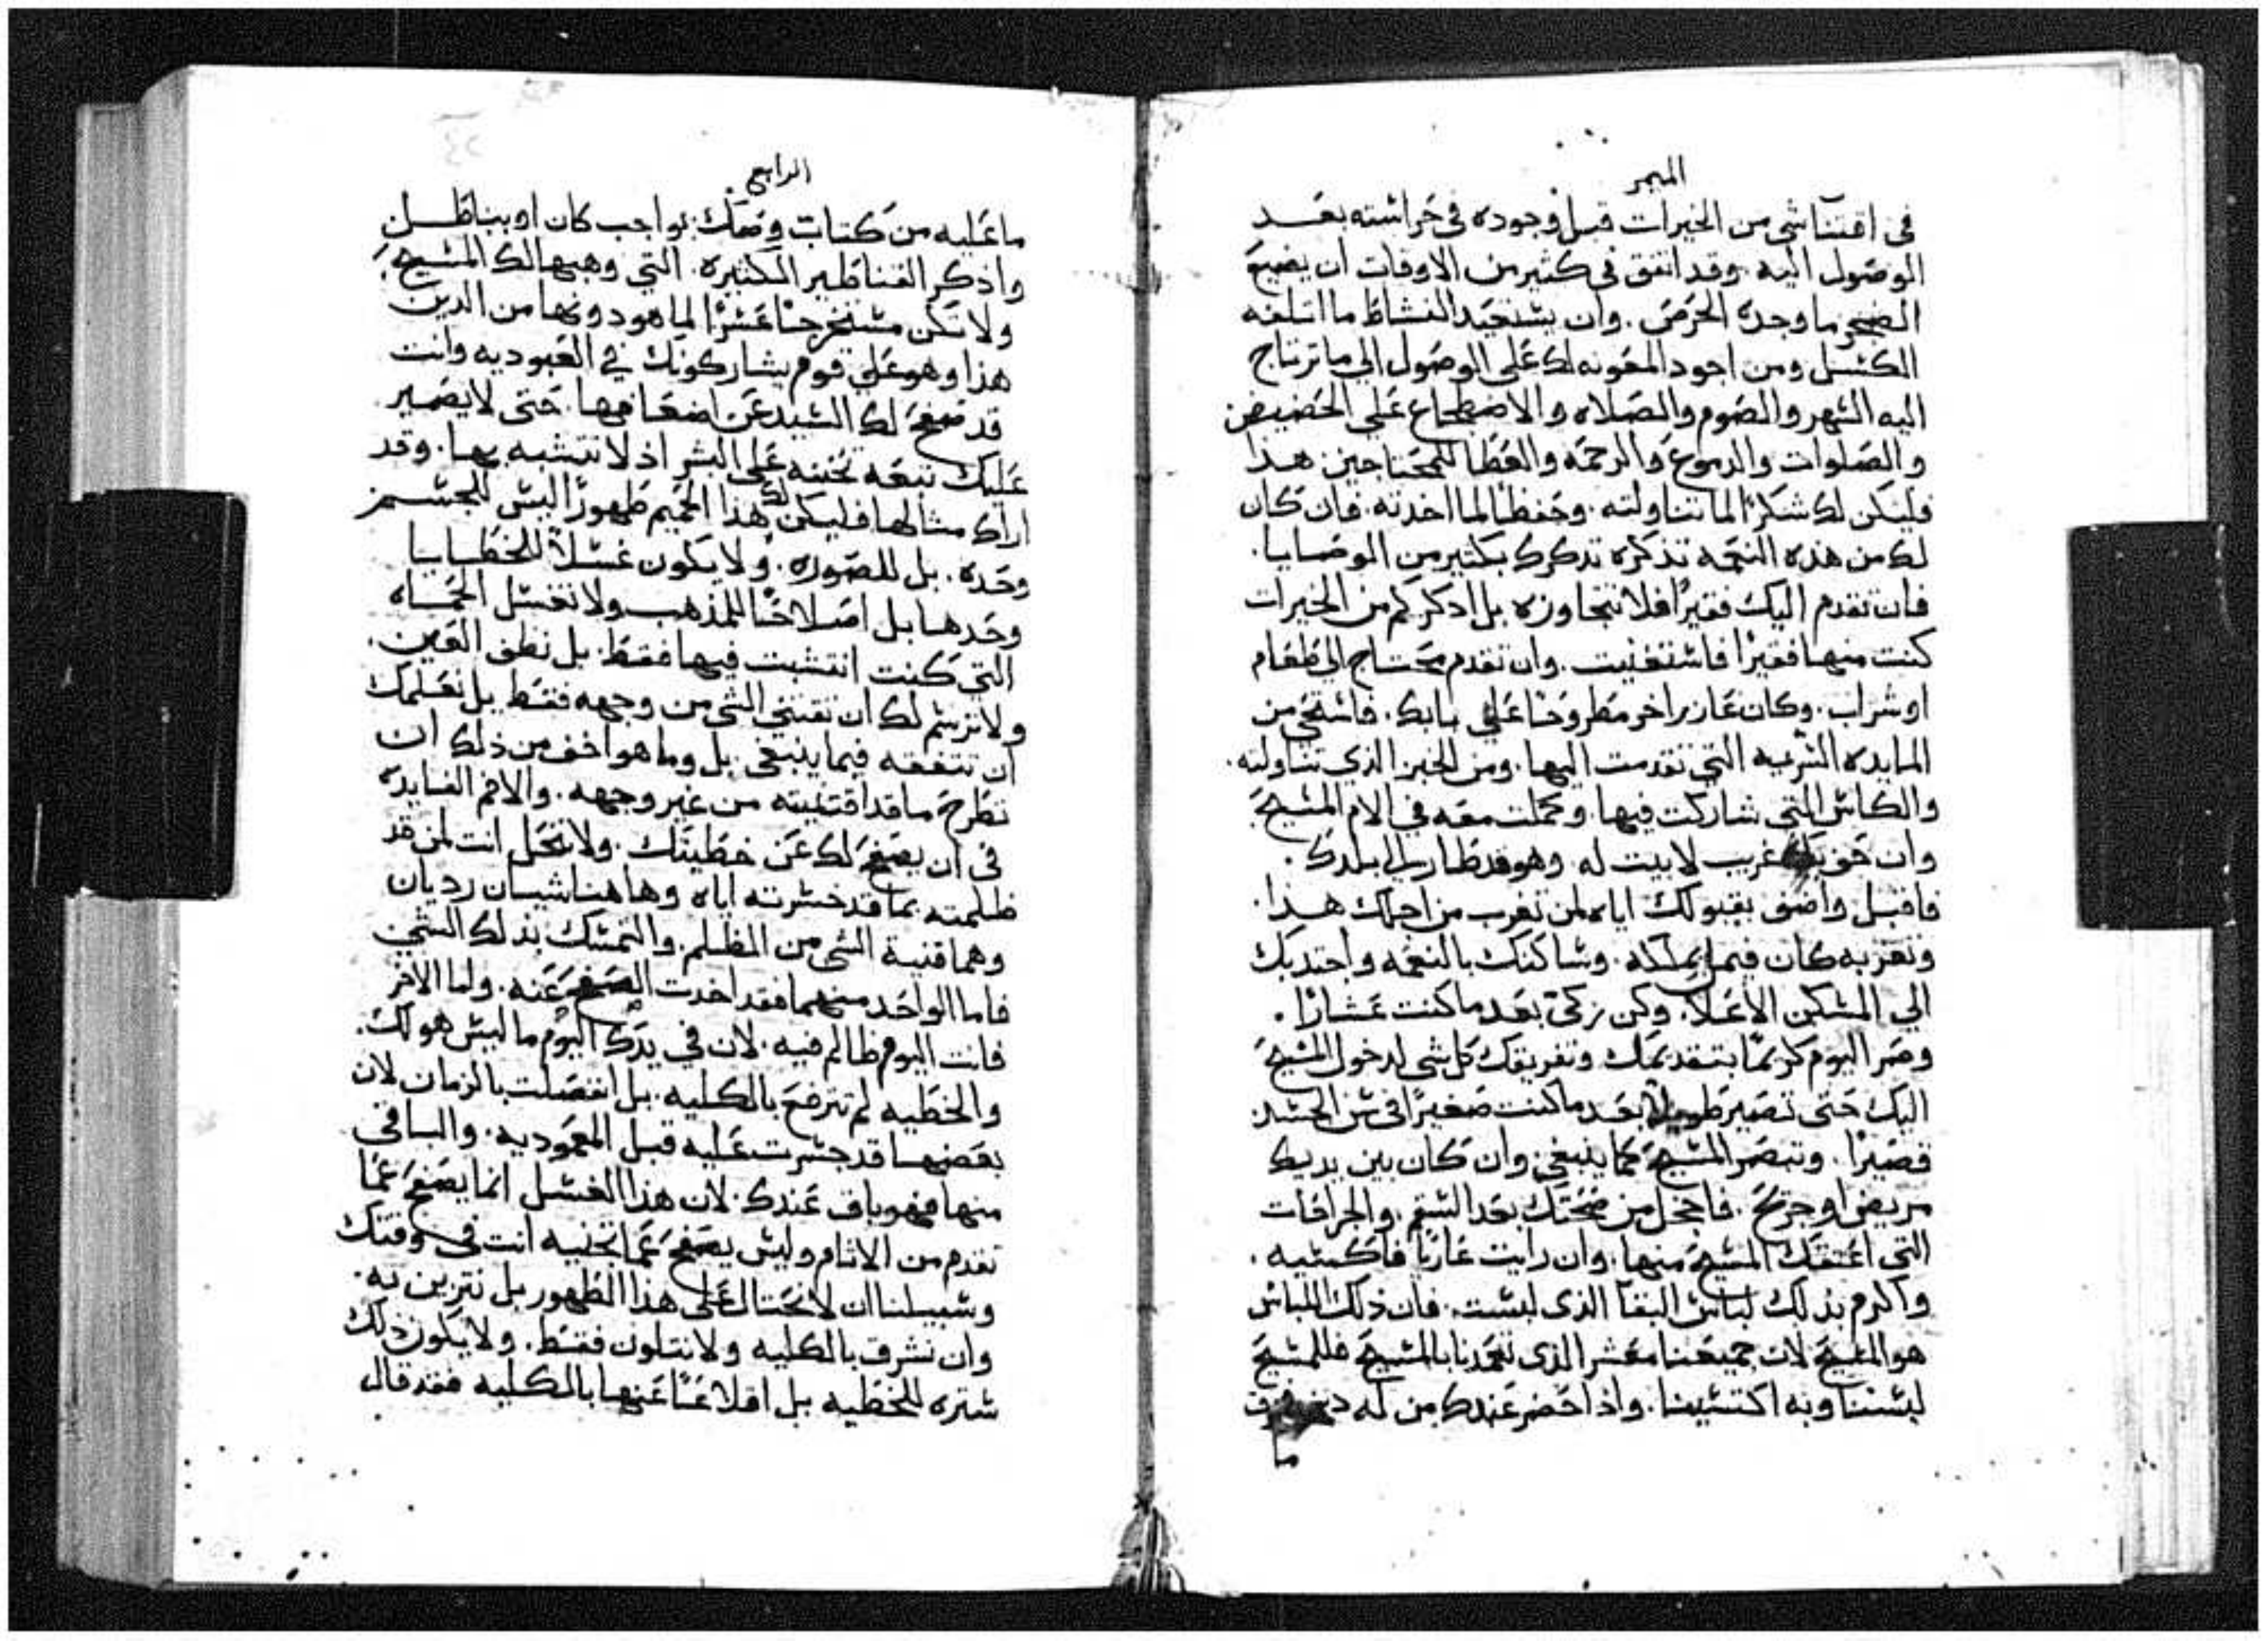 الميمر
في اقتنا شي من الخيرات قبل وجوده في حراسته بعد
الوصول اليه. وقد اتفق في كثير من الاوقات ان يضيع
الضجر ما وجده الحرص. وان يستعيد النشاط ما اتلفه
الكسل ومن اجود المعونه لك علي الوصول الي ما ترتاج
اليه السهر والصوم والصلاه والاضطجاع علي الحضيض
والصلوات والدموع والرحمه والعطا للمحتاجين هذا
فليكن لك شكرًا لما تناولته. وحفظًا لما اخدته. فان كان
لك من هذه النعمه تذكره تدكرك بكثير من الوصايا.
فان تقدم اليك فقيرًا فلا تتجاوزه بل ادكر كم من الخيرات
كنت منها فقيرًا فاستغنيت. وان تقدم محتاج الي طعام
او شراب. وكان عازر اخر مطروحًا علي بابك. فاستحي من
المايده السريه التي تقدمت اليها. ومن الخبز الذي تناولته.
والكاس التي شاركت فيها. وكملت معه في الام المسيح
وان حق بك غريب لا بيت له. وهو قد طار الي بلدك.
فاقبل واضف بقبولك اياه لمن تغرب من اجلك هذا.
وتغربه كان فيما يملكه. وساكنك بالنعمه واجتدبك
الي المسكن الاعلا. وكن زكي بعد ما كنت عشارًا.
وصر اليوم كريمًا بتقديمك وتفريقك كل شي لدخول المسيح
اليك حتي تصير طويلًا بعد ما كنت صغيرًا في سن الجسد
قصيرًا. وتبصر المسيح كما ينبغي. وان كان بين يديك
مريض او جريح. فاخجل من صحتك بعد السقم. والجراحات
التي اعتقك المسيح منها. وان رايت عاريًا فاكسيه.
واكرم بذلك لباس البقا الذي لبست. فان ذلك اللباس
هو المسيح لان جميعنا معشر الذي تعمدنا بالمسيح فللمسيح
لبسنا وبه اكتسينا. واذا حضر عندك من له دين
ما
الرابع
ما عليه من كتاب وصك بواجب كان او بباطل
واذكر القناطير الكثيره. التي وهبها لك المسيح
ولا تكن مستخرجًا عشرًا لما هو دونها من الدين
هذا وهو علي قوم يشاركونك في العبوديه وانت
قد صفح لك السيد عن اضعافها. حتي لا يصير
عليك تبعه تجنيه علي البشر اذ لا تتشبه بها. وقد
اراك مثالها فليكن لك هذا الحميم طهورًا ليس للجسم
وحده. بل للصوره. ولا يكون غسلًا للخطايا
وحدها بل اصلاحًا للمذهب ولا تغسل الحماه
التي كنت انتشبت فيها فقط. بل نظف العين.
ولا نرسم لك ان تقتني الشي من وجهه فقط بل نعلمك
ان تتفقه فيما ينبغي. بل وما هو اخف من ذلك ان
تطرح ما قد اقتنيته من غير وجهه. والا فم الفايده
في ان يصفح لك عن خطيتك. ولا تحل انت لمن قد
ظلمته بما قد خسرته اياه وهاهنا شيان رديان
وهما قنية الشي من الظلم. والتمسك بذلك الشي
فاما الواحد منهما فقد اخدت الصفح عنه. واما الاخر
فانت اليوم ظالم فيه. لان في يدك اليوم ما ليس هو لك.
والخطيه لم ترفع بالكليه. بل انفصلت بالزمان لان
بعضها قد جسرت عليه قبل المعموديه. والباقي
منها فهو باق عندك. لان هذا الغسل انما يصفح عما
تقدم من الاثام وليس يصفح عما تجنيه انت في وقتك
وسبيلنا ان لا نحتال علي هذا الطهور بل نتزين به.
وان نشرق بالكليه ولا نتلون فقط. ولا يكون ذلك
ستره للخطيه بل اقلاعًا عنها بالكليه فقد قال